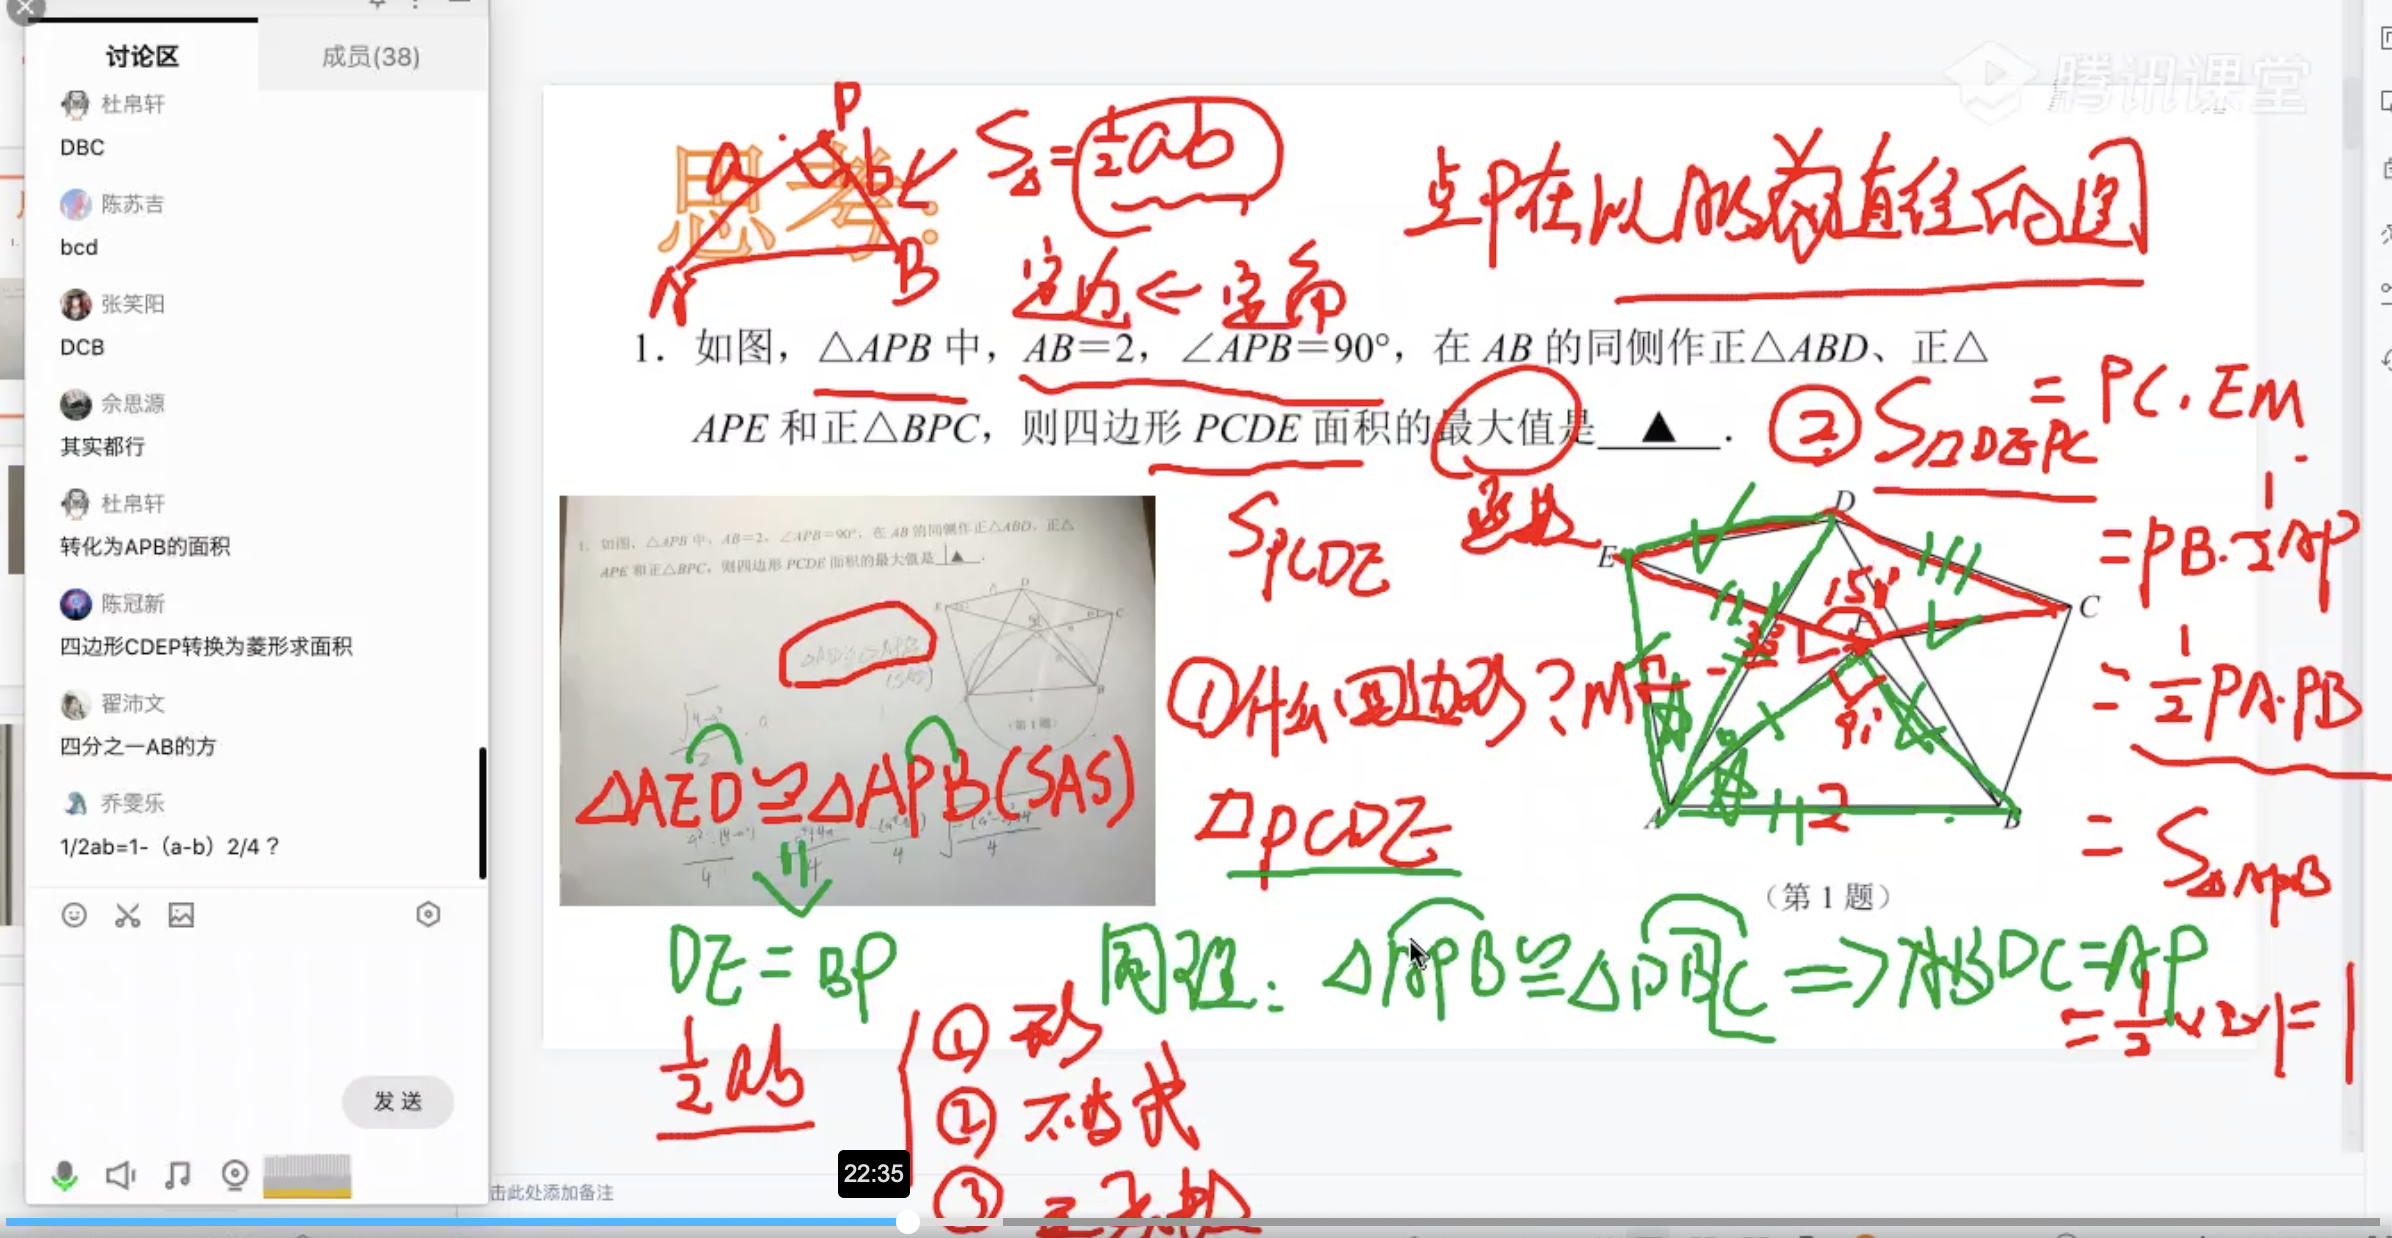 讨论区
成员(38)
杜帛轩
DBC
陈苏吉
bcd
张笑阳
DCB
佘思源
其实都行
杜帛轩
转化为APB的面积
陈冠新
四边形CDEP转换为菱形求面积
翟沛文
四分之一AB的方
乔雯乐
1/2ab=1-（a-b）2/4？
发送
22:35
击此处添加备注
腾讯课堂
思考:
P
a
b
A
B
S△=½ab
定边 ← 定角
点P在以AB为直径的圆
1. 如图，△APB 中，AB=2，∠APB=90°，在 AB 的同侧作正△ABD、正△
APE 和正△BPC，则四边形 PCDE 面积的最大值是 ▲ .
② S▱DEPC = PC·EM
=PB·½AP
=½PA·PB
= S△APB
=½×2×1=1
S PCDE
①什么四边形？
▱PCDE
1. 如图，△APB 中，AB=2，∠APB=90°，在 AB 的同侧作正△ABD、正△
APE 和正△BPC，则四边形 PCDE 面积的最大值是 ▲ .
（第 1 题）
△AED≌△APB(SAS)
DE=BP
同理：△APB≌△DBC => DC=AP
½ab
① 形
②
③
E
D
C
150°
M
90°
A
2
B
（第 1 题）